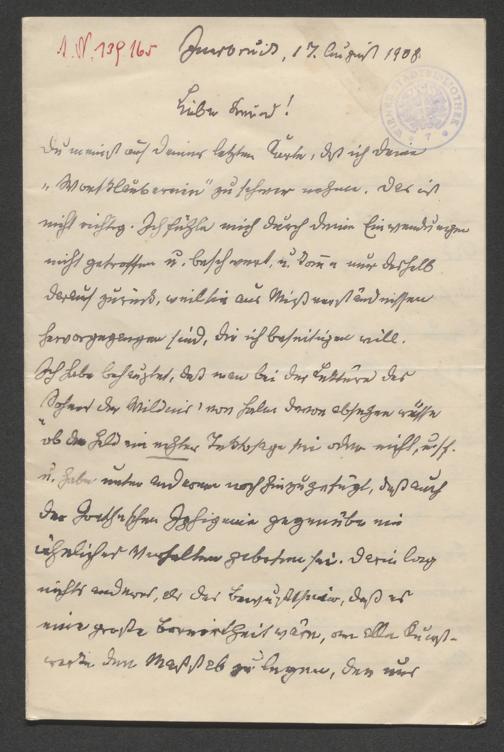 I. N. 139165
Innsbruck, 17. August 1908.
WIENER STADTBIBLIOTHEK
Lieber Freund!
Du meinst auf Deiner letzten Karte, daß ich Deine
"Wortklaubereien" zu schwer nehme. Das ist
nicht richtig. Ich fühle mich durch Deine Einwendungen
nicht getroffen u. beschwert, u. komme nur deshalb
darauf zurück, weil sie aus Mißverständnissen
hervorgegangen sind, die ich beseitigen will.
Ich habe behauptet, daß man bei der Lektüre des
Sohnes der Wildnis' von Halm davon absehen müsse
ob der Held ein echter Tektosage sei oder nicht, usf.
u. habe unter anderem noch hinzugefügt, daß auch
der Goetheschen Iphigenie gegenüber ein
ähnliches Verhalten geboten sei. Darin lag
nichts anderes, als das Bewußtsein, daß es
eine große Borniertheit wäre, an alle Kunst-
werke den Maßstab zu legen, den uns